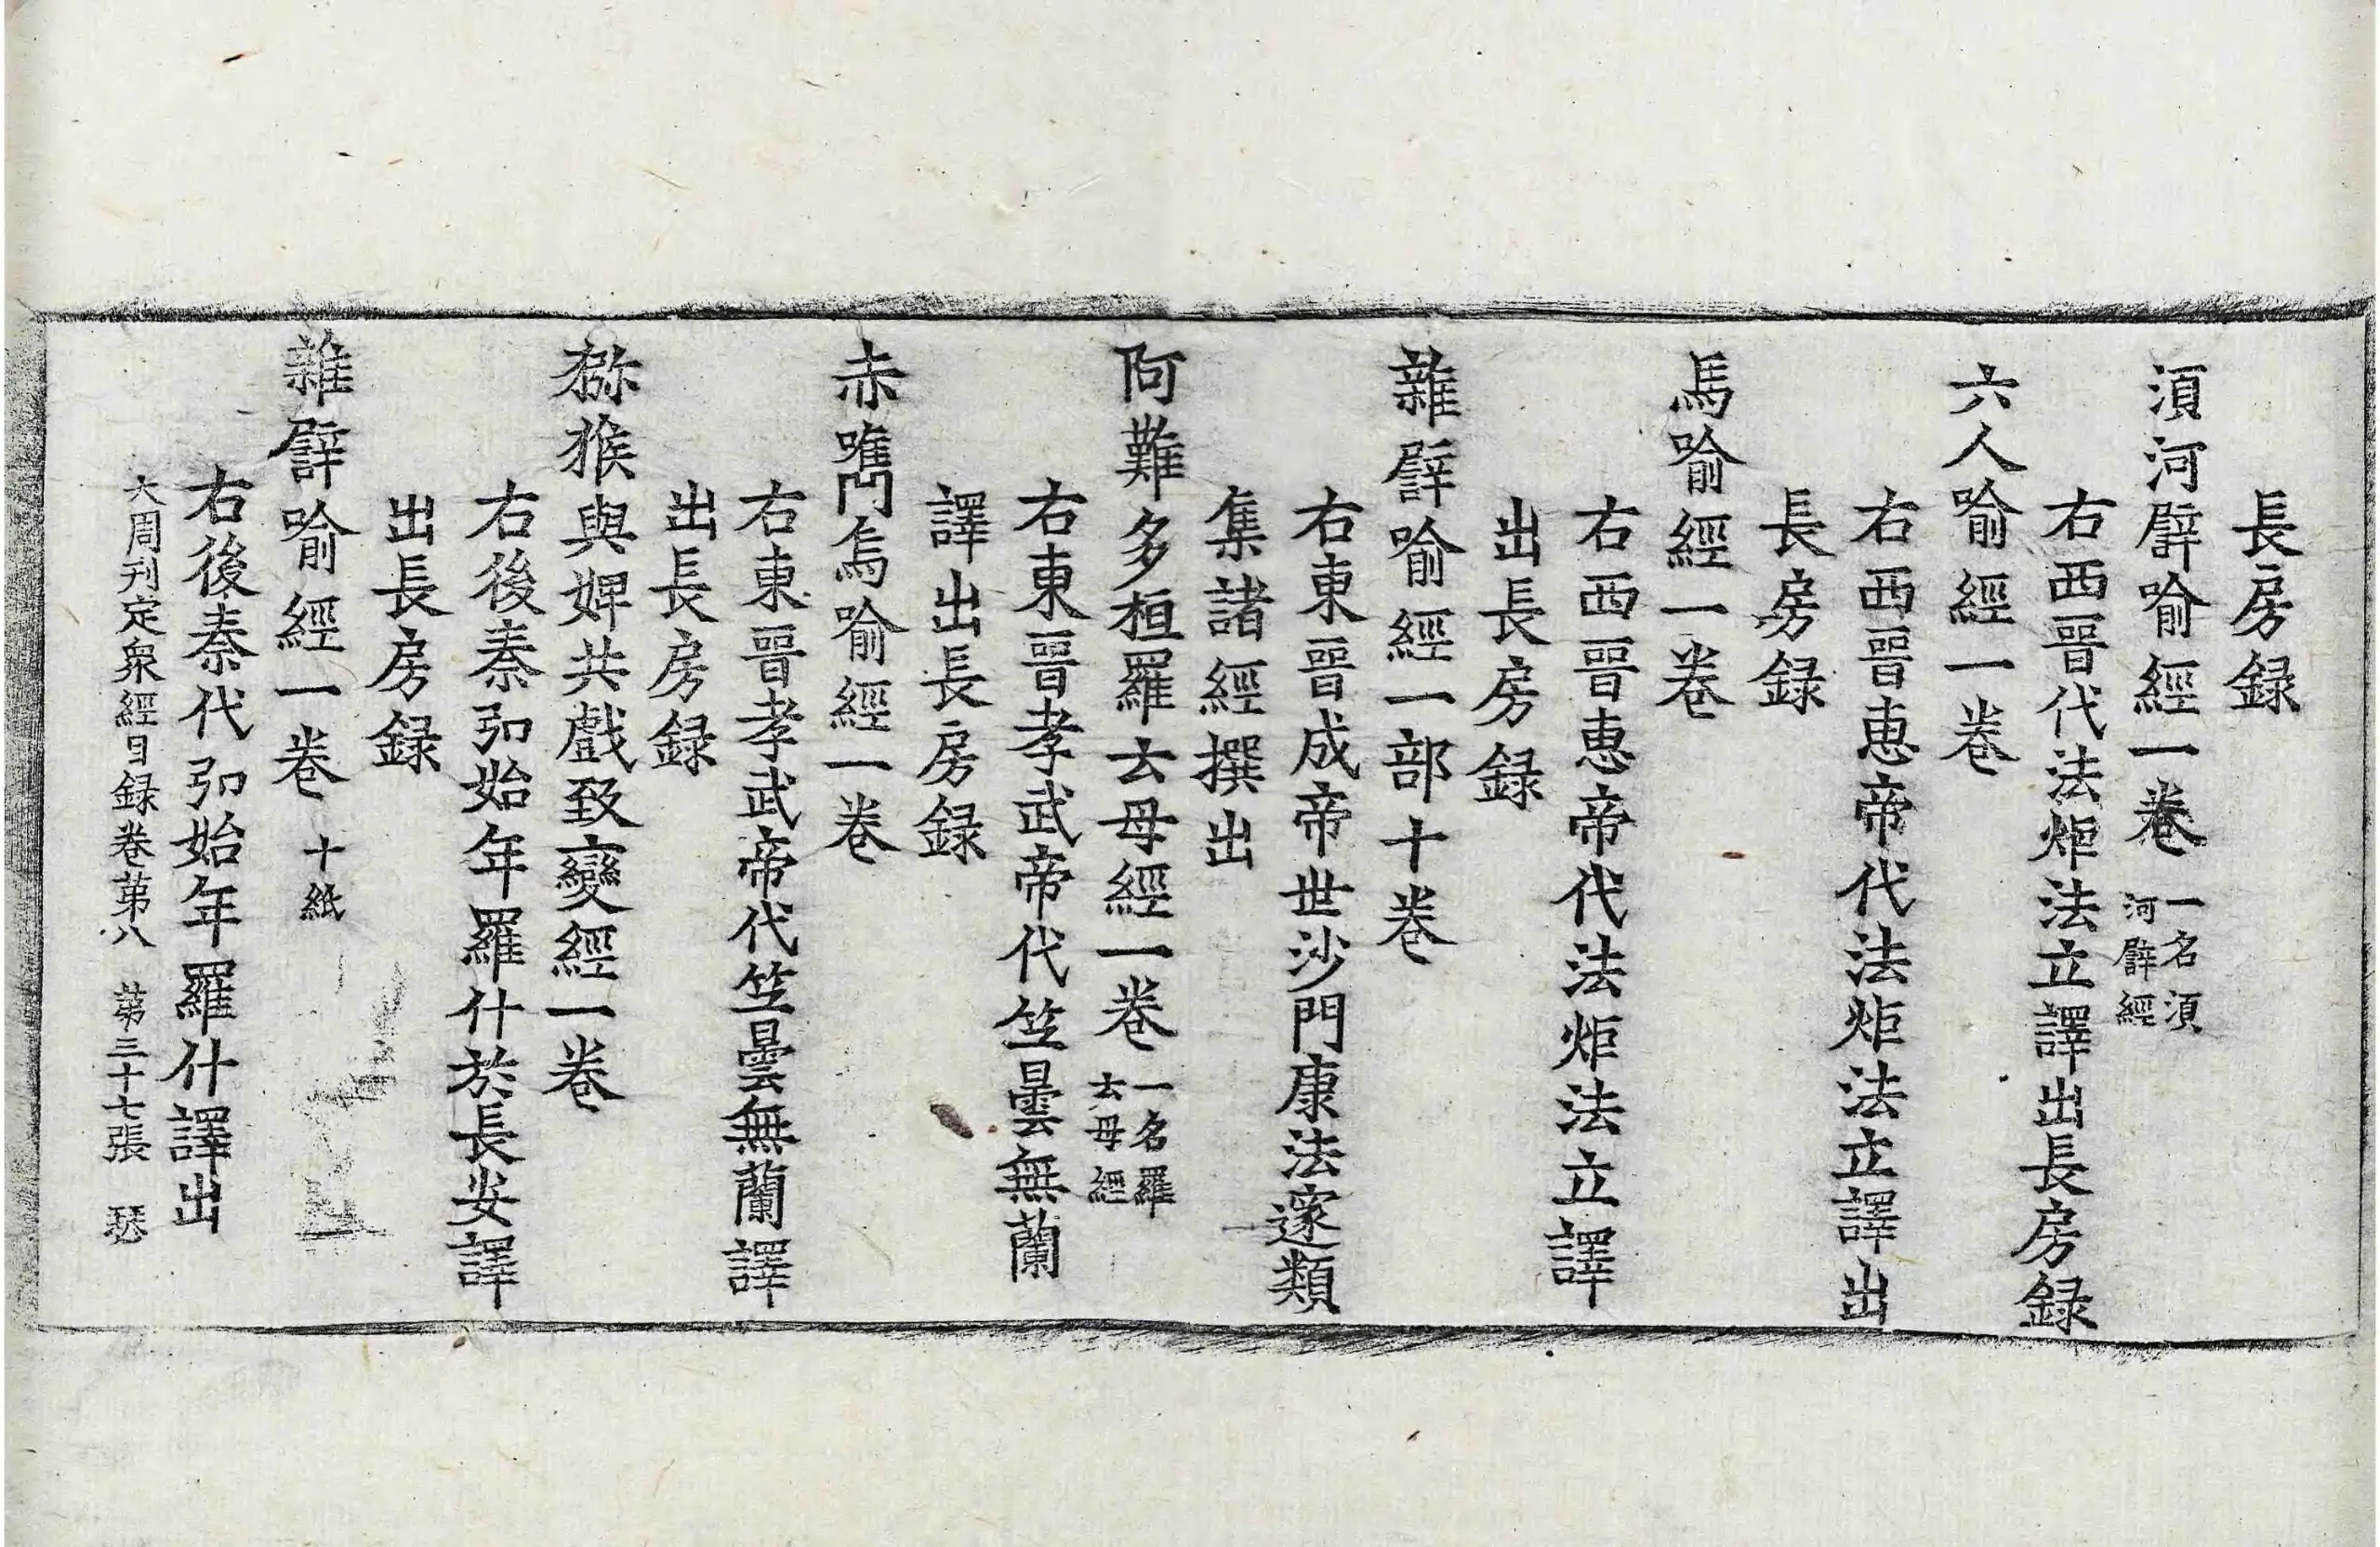 長房録
湏河譬喻經一卷 一名湏河譬經
右西晉代法炬法立譯出長房録
六人喻經一卷
右西晉惠帝代法炬法立譯出
長房録
馬喻經一卷
右西晉惠帝代法炬法立譯
出長房録
雜譬喻經一部十卷
右東晉成帝世沙門康法邃類
集諸經撰出
阿難多桓羅云母經一卷 一名羅云母經
右東晉孝武帝代竺曇無蘭
譯出長房録
赤嘴烏喻經一卷
右東晉孝武帝代竺曇無蘭譯
出長房録
猕猴與婢共戲致變經一卷
右後秦弘始年羅什於長安譯
出長房録
雜譬喻經一卷 十紙
右後秦代弘始年羅什譯出
大周刊定衆經目録卷苐八 苐三十七張 瑟